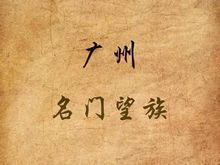 广州
名门望族